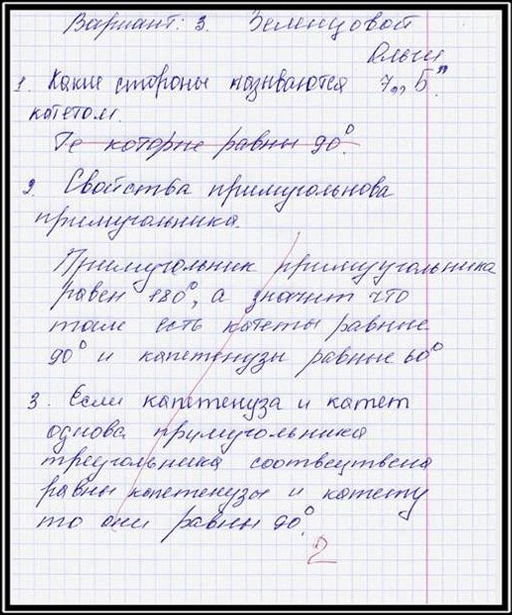 Вариант: 3. Зеленцовой
Ольги
1. Какие стороны называются 7„Б"
котетом.
Те которые равны 90°.
2. Свойства примугольнова
примугольника.
Примугольник примуугольника
равен 180°, а значит что
там есть катеты равные
90° и капетенузы равные 60°
3. Если капетенуза и катет
однова примугольника
треугольника соотвецтвена
равны капетенузы и катету
то они равны 90°.
2